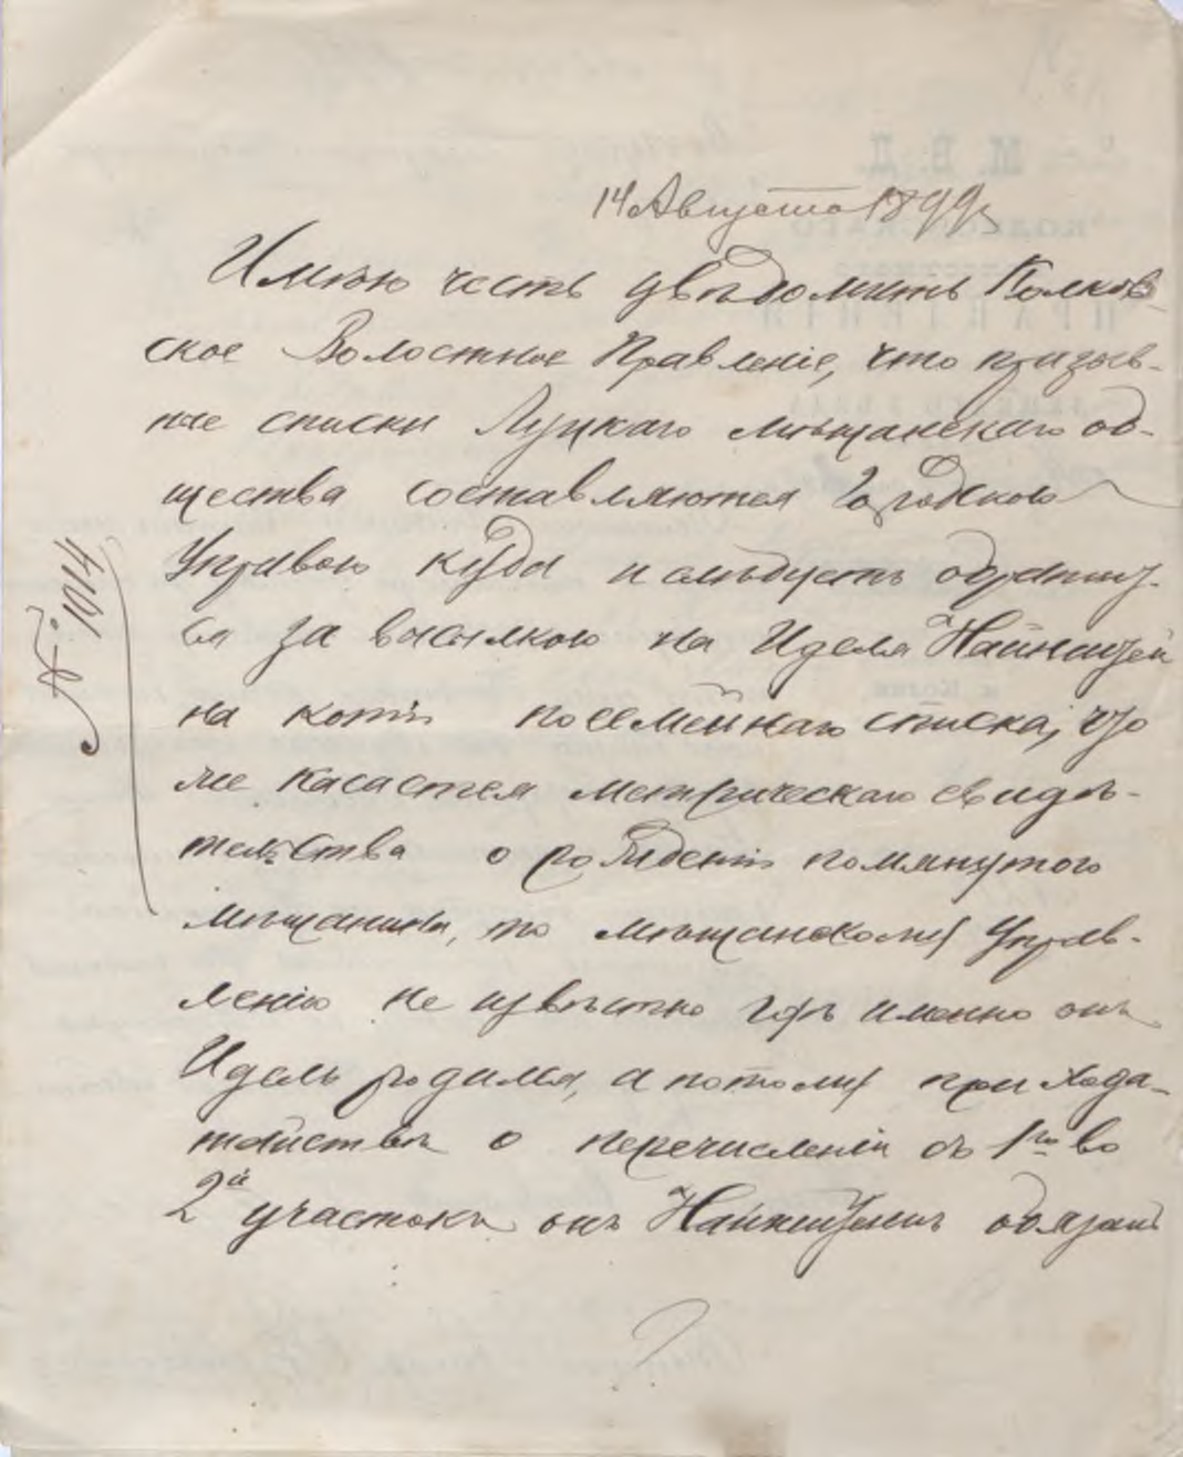 14 Августа 1899 г
Имѣю честь увѣдомить Колков-
ское Волостное Правленіе, что призыв-
ные списки Луцкаго мѣщанскаго об-
щества составляются Городскою
Управою куда и слѣдуетъ обратит-
ся за высылкою на Иделя
на копіи посемейнаго списка, что
же касается метрическаго свидѣ-
тельства о рожденіи помянутого
мѣщанина, то мѣщанскому Управ-
ленію не извѣстно гдѣ именно онъ
Идель родился, а потому при хода-
тайствѣ о перечисленіи съ 1го во
2й участокъ онъ обязанъ
№ 1914